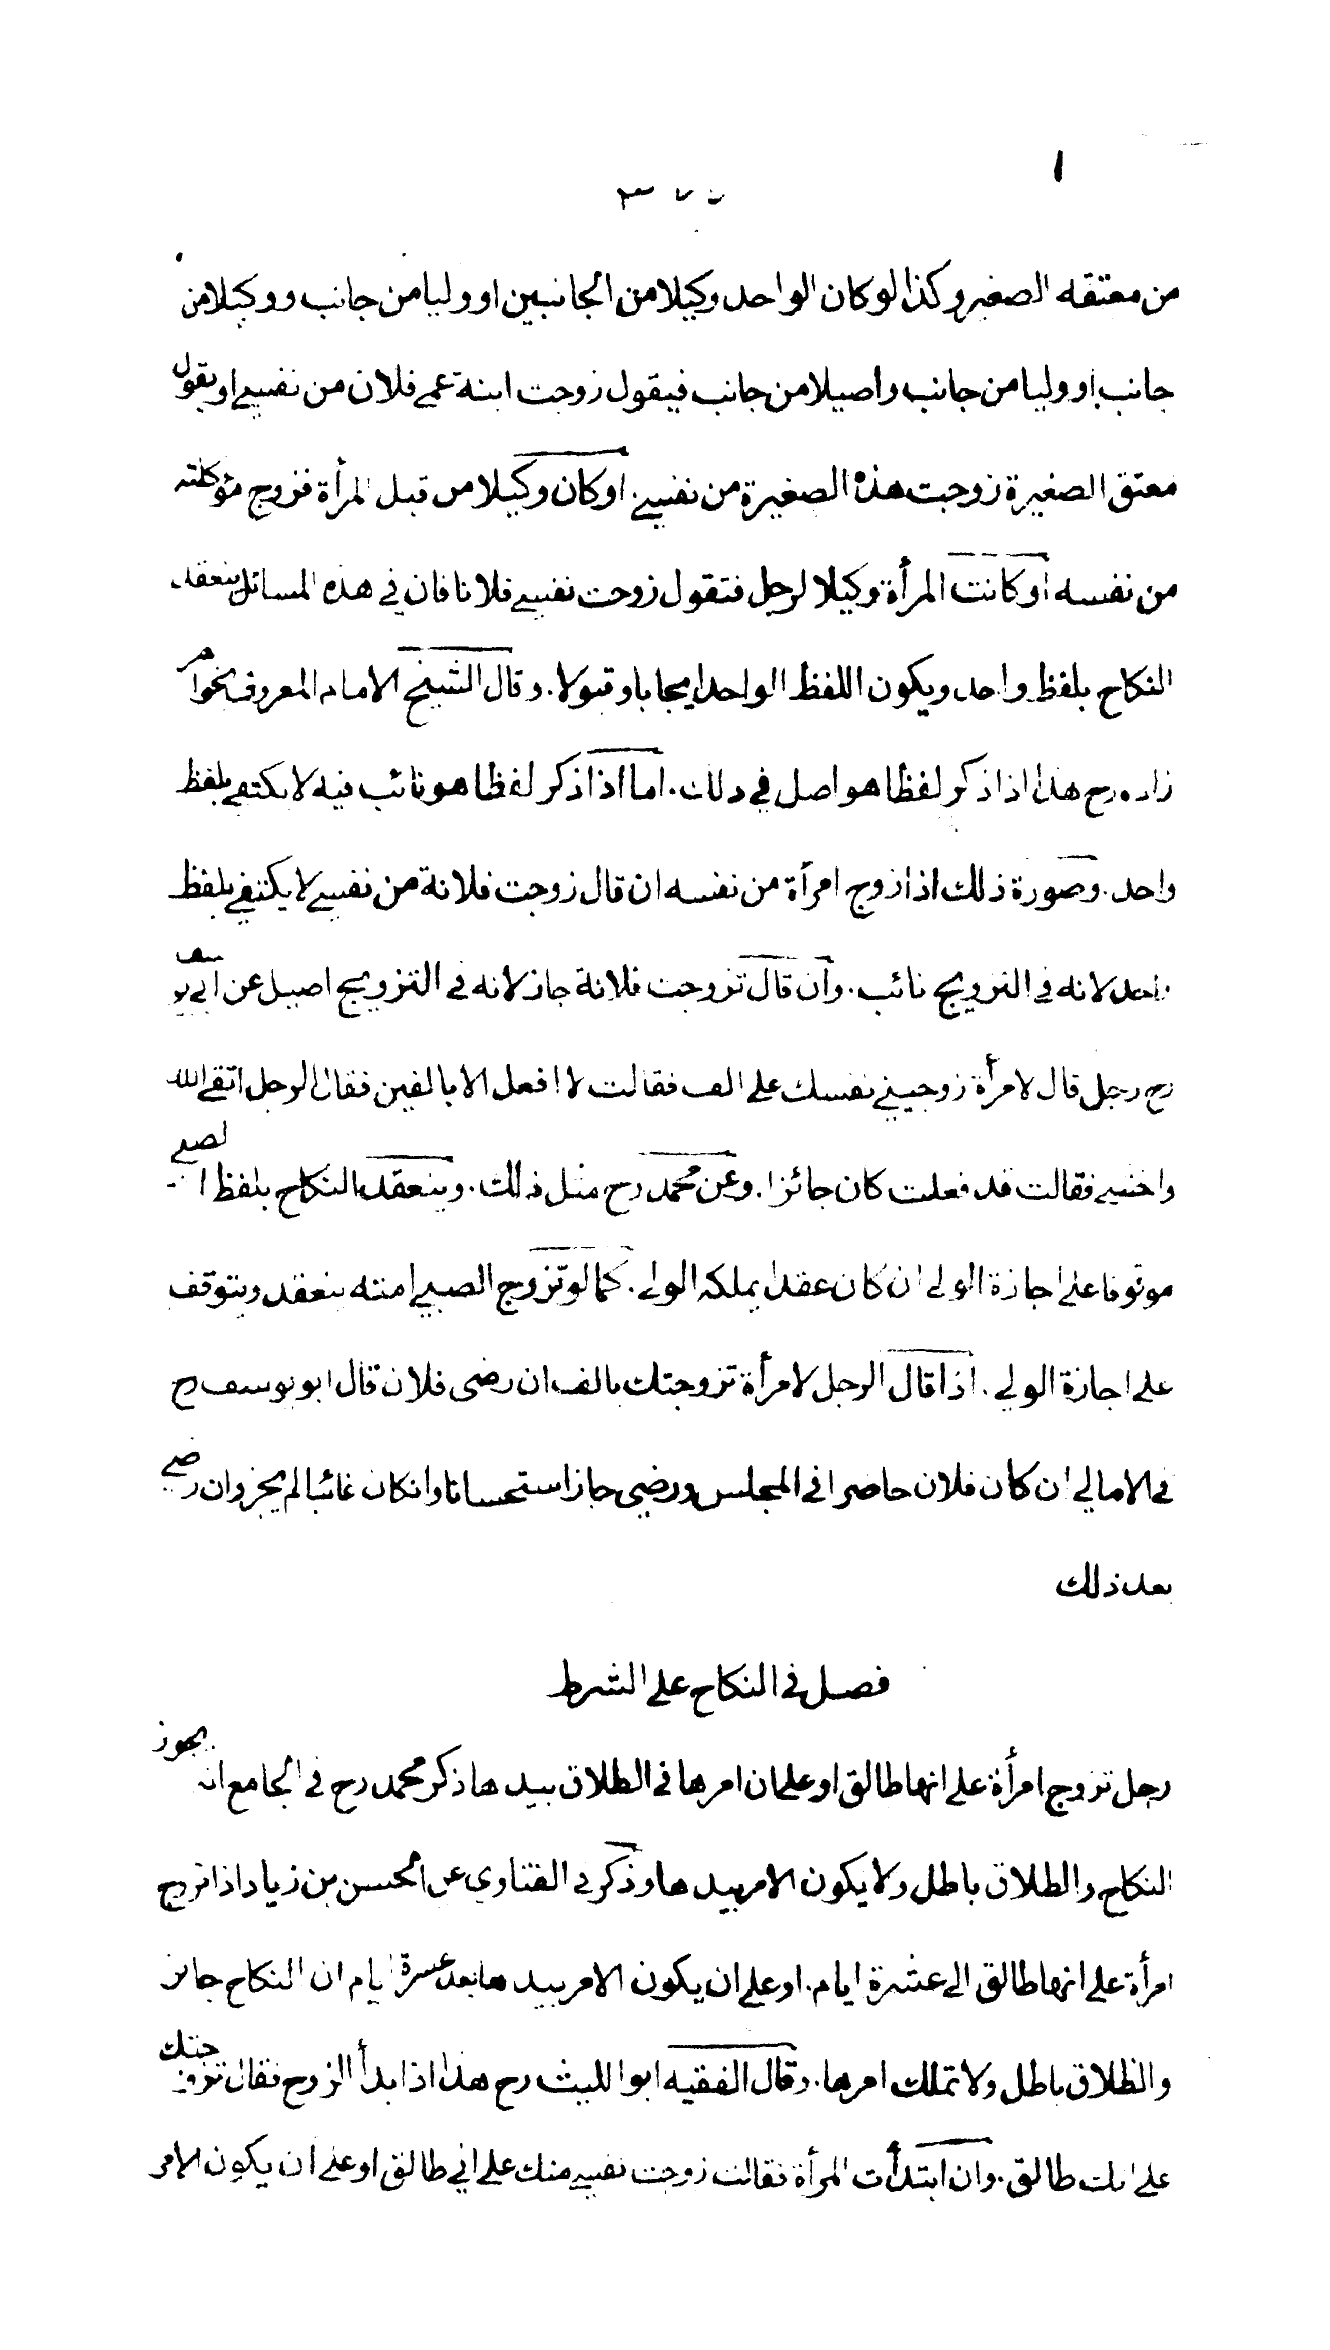 من معتقه الصغير وكذا لو كان الواحد وكيلا من الجانبين او وليا من جانب ووكيلا من
جانب او وليا من جانب واصيلا من جانب فيقول زوجت ابنة عمي فلان من نفسي او يقول
معتق الصغيرة زوجت هذه الصغيرة من نفسي. او كان وكيلا من قبل المرأة فزوج مؤكلته
من نفسه او كانت المرأة وكيلا لرجل فتقول زوجت نفسي فلانا فان في هذه المسائل ينعقد
النكاح بلفظ واحد ويكون اللفظ الواحد ايجابا وقبولا. وقال الشيخ الامام المعروف بخواهر
زاده رح هذا اذا ذكر لفظا هو اصل في ذلك. اما اذا ذكر لفظا هو نائب فيه لا يكتفي بلفظ
واحد. وصورة ذلك اذا زوج امرأة من نفسه ان قال زوجت فلانة من نفسي لا يكتفي بلفظ
واحد لانه في التزويج نائب. وان قال تزوجت فلانة جاز لانه في التزويج اصيل عن ابي يوسف
رح رجل قال لامرأة زوجيني نفسك على الف فقالت لا افعل الا بالفين فقال الرجل اتقي الله
واخشي فقالت قد فعلت كان جائزا. وعن محمد رح مثل ذلك. وينعقد النكاح بلفظ الصبي
موقوفا على اجازة الولي ان كان عقدا يملكه الولي. كما لو تزوج الصبي امته ينعقد ويتوقف
على اجازة الولي. اذا قال الرجل لامرأة تزوجتك بالف ان رضى فلان قال ابو يوسف رح
في الامالي ان كان فلان حاضرا في المجلس ورضي جاز استحسانا وانكان غائبا لم يجز وان رضي
بعد ذلك
فصل في النكاح على الشرط
رجل تزوج امرأة على انها طالق او على ان امرها في الطلاق بيدها ذكر محمد رح في الجامع انه يجوز
النكاح والطلاق باطل ولا يكون الامر بيدها وذكر في الفتاوى عن الحسن بن زياد اذا تزوج
امرأة على انها طالق الى عشرة ايام. او على ان يكون الامر بيدها بعد عشرة ايام ان النكاح جائز
والطلاق باطل ولا تملك امرها. وقال الفقيه ابو الليث رح هذا اذا بدأ الزوج فقال تزوجتك
على انك طالق. وان ابتدأت المرأة فقالت زوجت نفسي منك على اني طالق او على ان يكون الامر